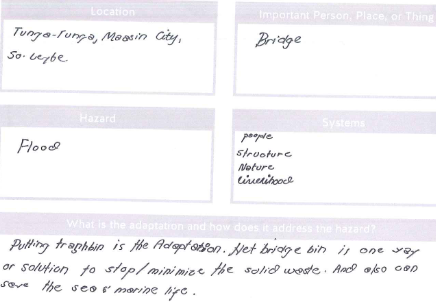 Location
Important Person, Place, or Thing
Tunga-Tunga, Maasin City,
So. Leyte
Bridge
Hazard
Systems
Flood
people
structure
Nature
livelihood
What is the adaptation and how does it address the hazard?
Putting trashbin is the Adaptation. Net bridge bin is one way
or solution to stop/minimize the solid waste. And also can
save the sea & marine life.